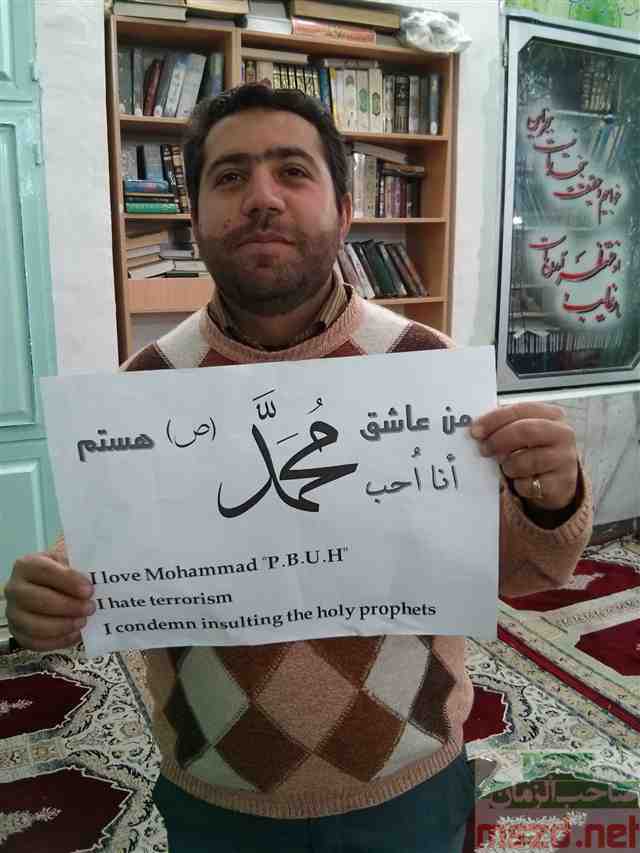 من عاشق مُحَمَّد (ص) هستم
أنا اُحب
I love Mohammad "P.B.U.H"
I hate terrorism
I condemn insulting the holy prophets
صاحب الزمان
mszd.net